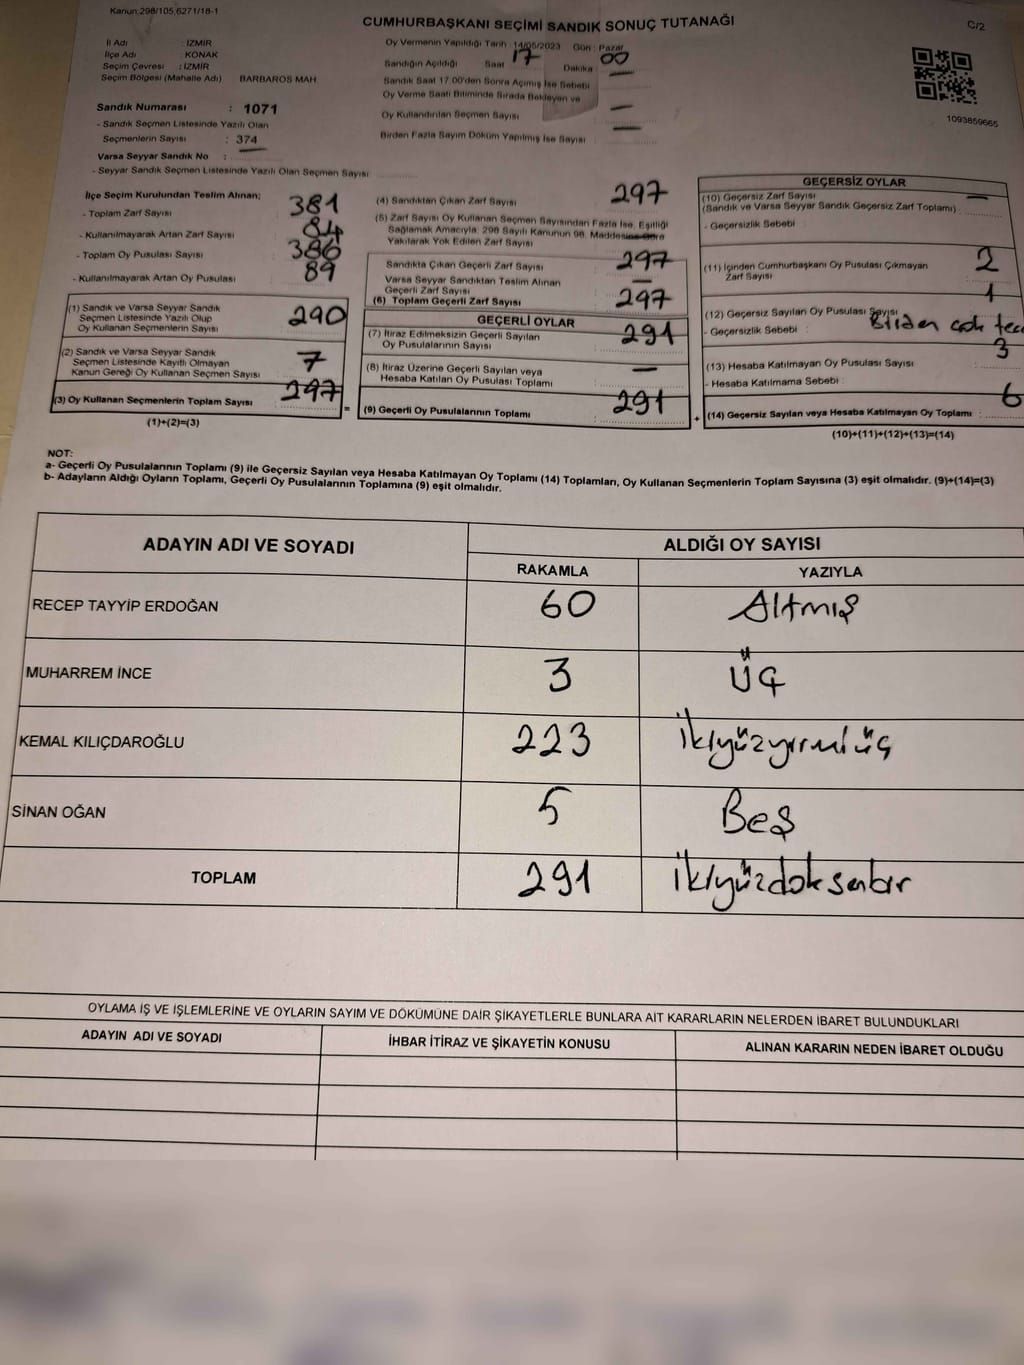 Kanun:298/105,6271/18-1
CUMHURBAŞKANI SEÇİMİ SANDIK SONUÇ TUTANAĞI
C/2
İl Adı : İZMİR
İlçe Adı : KONAK
Seçim Çevresi : İZMİR
Seçim Bölgesi (Mahalle Adı) BARBAROS MAH.
Sandık Numarası : 1071
- Sandık Seçmen Listesinde Yazılı Olan
Seçmenlerin Sayısı : 374
Varsa Seyyar Sandık No : —
- Seyyar Sandık Seçmen Listesinde Yazılı Olan Seçmen Sayısı
Oy Vermenin Yapıldığı Tarih 14/05/2023 Gün : Pazar
Sandığın Açıldığı Saat 17 Dakika 00
Sandık Saat 17.00'den Sonra Açılmış İse Sebebi —
Oy Verme Saati Bitiminde Sırada Bekleyen ve
Oy Kullandırılan Seçmen Sayısı —
Birden Fazla Sayım Döküm Yapılmış İse Sayısı —
1093859665
İlçe Seçim Kurulundan Teslim Alınan;
- Toplam Zarf Sayısı 381
- Kullanılmayarak Artan Zarf Sayısı 84
- Toplam Oy Pusulası Sayısı 386
- Kullanılmayarak Artan Oy Pusulası 89
(1) Sandık ve Varsa Seyyar Sandık
Seçmen Listesinde Yazılı Olup
Oy Kullanan Seçmenlerin Sayısı 290
(2) Sandık ve Varsa Seyyar Sandık
Seçmen Listesinde Kayıtlı Olmayan
Kanun Gereği Oy Kullanan Seçmen Sayısı 7
(3) Oy Kullanan Seçmenlerin Toplam Sayısı 297
(1)+(2)=(3)
(4) Sandıktan Çıkan Zarf Sayısı 297
(5) Zarf Sayısı Oy Kullanan Seçmen Sayısından Fazla İse, Eşitliği
Sağlamak Amacıyla, 298 Sayılı Kanunun 98. Maddesine Göre
Yakılarak Yok Edilen Zarf Sayısı —
Sandıkta Çıkan Geçerli Zarf Sayısı 297
Varsa Seyyar Sandıktan Teslim Alınan
Geçerli Zarf Sayısı —
(6) Toplam Geçerli Zarf Sayısı 297
GEÇERLİ OYLAR
(7) İtiraz Edilmeksizin Geçerli Sayılan
Oy Pusulalarının Sayısı 291
(8) İtiraz Üzerine Geçerli Sayılan veya
Hesaba Katılan Oy Pusulası Toplamı —
= (9) Geçerli Oy Pusulalarının Toplamı 291
GEÇERSİZ OYLAR
(10) Geçersiz Zarf Sayısı —
(Sandık ve Varsa Seyyar Sandık Geçersiz Zarf Toplamı)
- Geçersizlik Sebebi :
(11) İçinden Cumhurbaşkanı Oy Pusulası Çıkmayan 2
Zarf Sayısı
(12) Geçersiz Sayılan Oy Pusulası Sayısı 1
- Geçersizlik Sebebi : Birden çok
(13) Hesaba Katılmayan Oy Pusulası Sayısı 3
- Hesaba Katılmama Sebebi :
+ (14) Geçersiz Sayılan veya Hesaba Katılmayan Oy Toplamı : 6
(10)+(11)+(12)+(13)=(14)
NOT:
a- Geçerli Oy Pusulalarının Toplamı (9) ile Geçersiz Sayılan veya Hesaba Katılmayan Oy Toplamı (14) Toplamları, Oy Kullanan Seçmenlerin Toplam Sayısına (3) eşit olmalıdır. (9)+(14)=(3)
b- Adayların Aldığı Oyların Toplamı, Geçerli Oy Pusulalarının Toplamına (9) eşit olmalıdır.
ADAYIN ADI VE SOYADI
ALDIĞI OY SAYISI
RAKAMLA YAZIYLA
RECEP TAYYİP ERDOĞAN 60 Altmış
MUHARREM İNCE 3 Üç
KEMAL KILIÇDAROĞLU 223 İkiyüzyirmiüç
SİNAN OĞAN 5 Beş
TOPLAM 291 İkiyüzdoksanbir
OYLAMA İŞ VE İŞLEMLERİNE VE OYLARIN SAYIM VE DÖKÜMÜNE DAİR ŞİKAYETLERLE BUNLARA AİT KARARLARIN NELERDEN İBARET BULUNDUKLARI
ADAYIN ADI VE SOYADI İHBAR İTİRAZ VE ŞİKAYETİN KONUSU ALINAN KARARIN NEDEN İBARET OLDUĞU